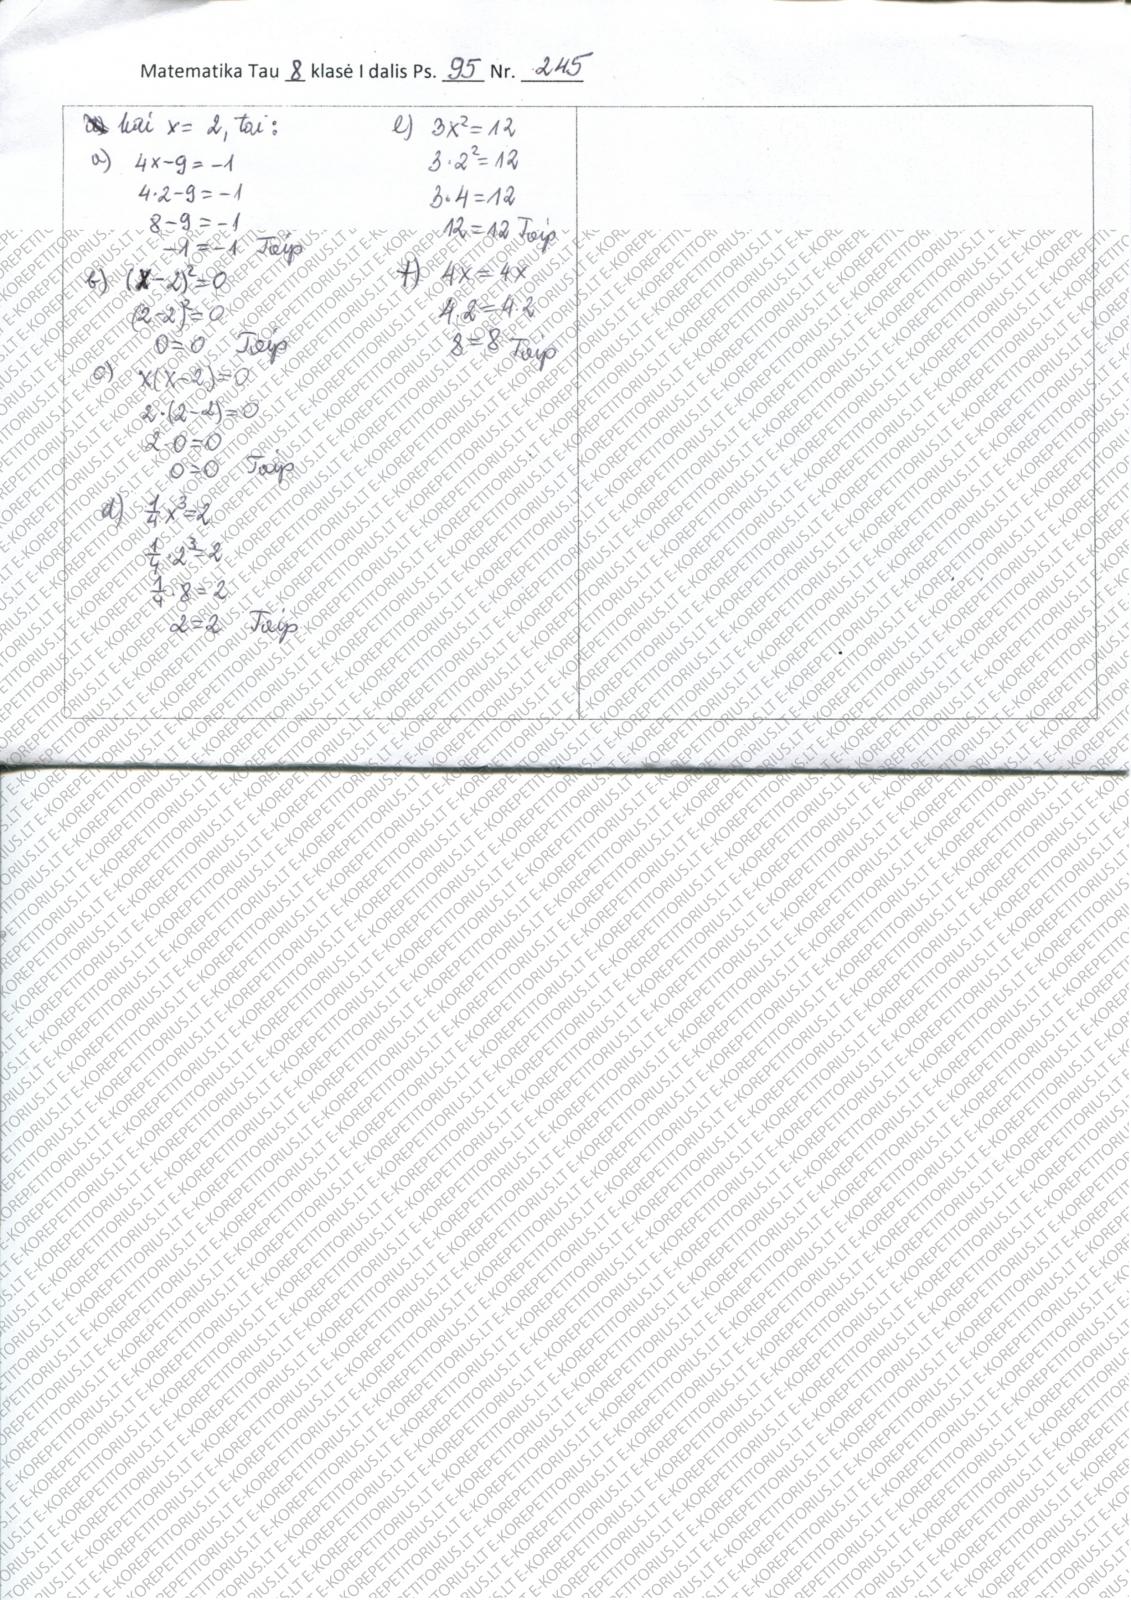 Matematika Tau 8 klasė I dalis Ps. 95 Nr. 245
kai x = 2, tai:
a) 4x-9=-1
4·2-9=-1
8-9=-1
-1=-1 Taip
b) (x-2)²=0
(2-2)²=0
0=0 Taip
c) x(x-2)=0
2·(2-2)=0
2·0=0
0=0 Taip
d) 1/4 x³=2
1/4·2³=2
1/4·8=2
2=2 Taip
e) 3x²=12
3·2²=12
3·4=12
12=12 Taip
f) 4x=4x
4·2=4·2
8=8 Taip
E-KOREPETITORIUS.LT